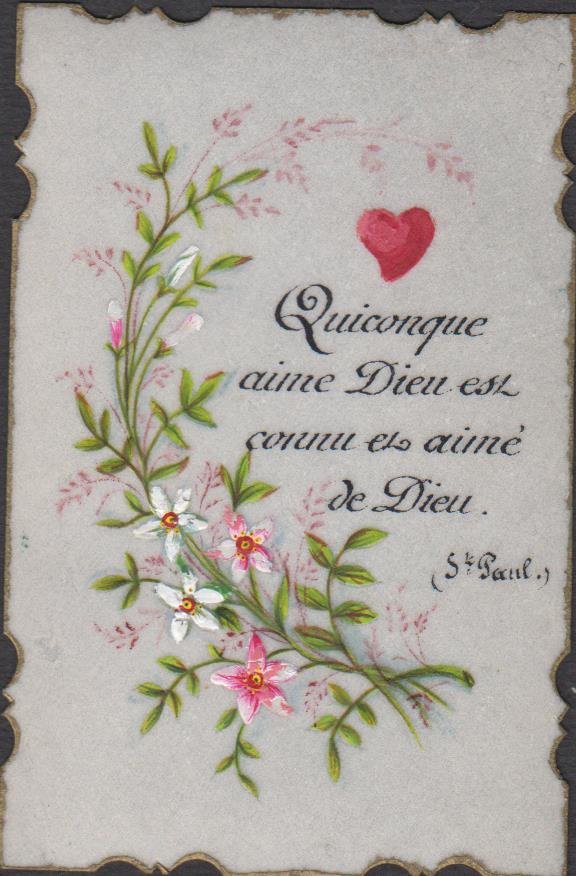 Quiconque
aime Dieu est
connu et aimé
de Dieu.
(St Paul.)